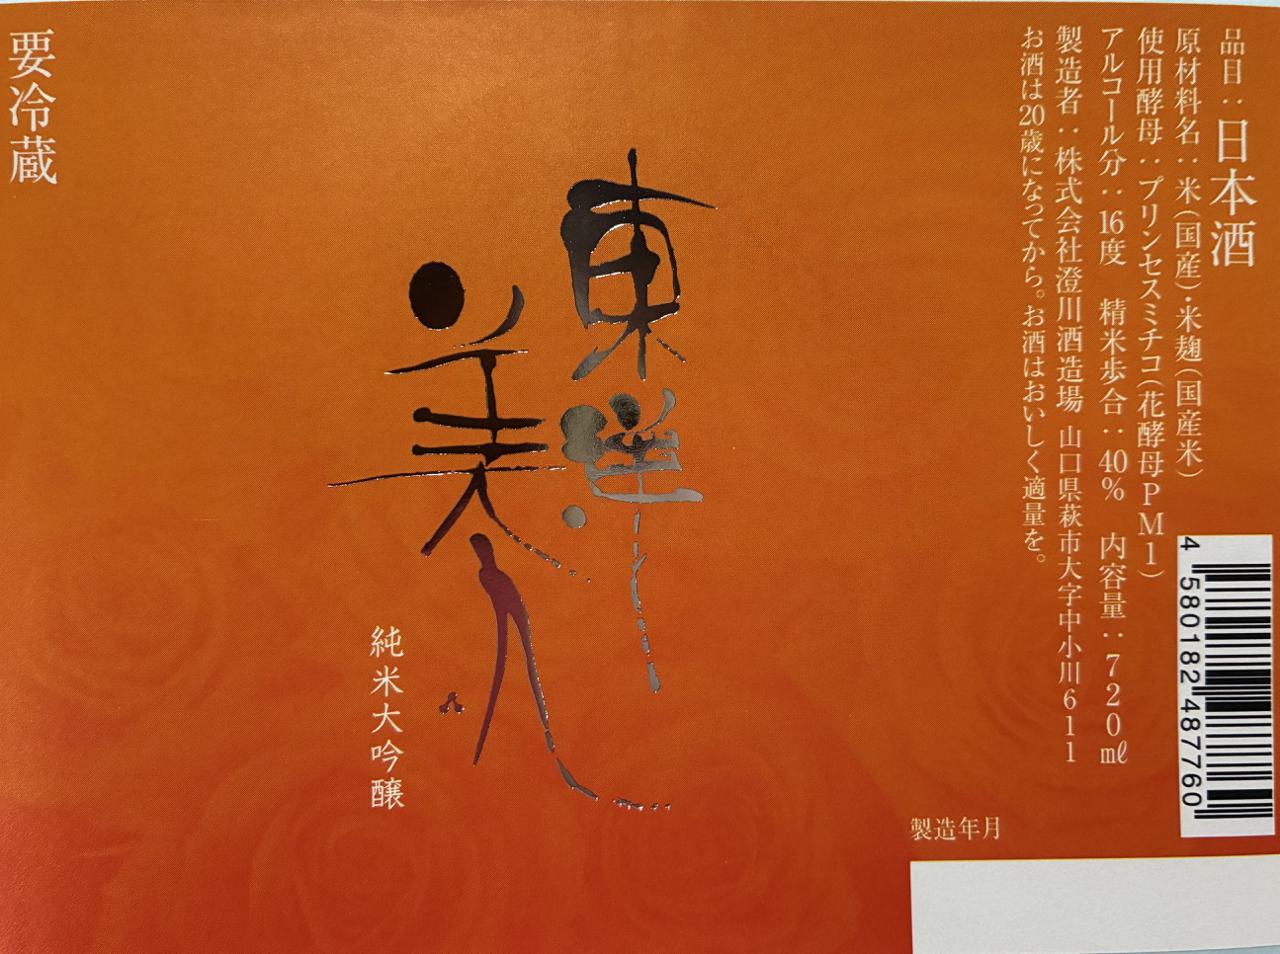 品目：日本酒
原材料名：米（国産）・米麹（国産米）
使用酵母：プリンセスミチコ（花酵母ＰＭ１）
アルコール分：16度　精米歩合：40%　内容量：７２０㎖
製造者：株式会社澄川酒造場 山口県萩市大字中小川６１１
お酒は20歳になってから。お酒はおいしく適量を。
4 580182 487760
製造年月
東洋
美人
純米大吟醸
要冷蔵